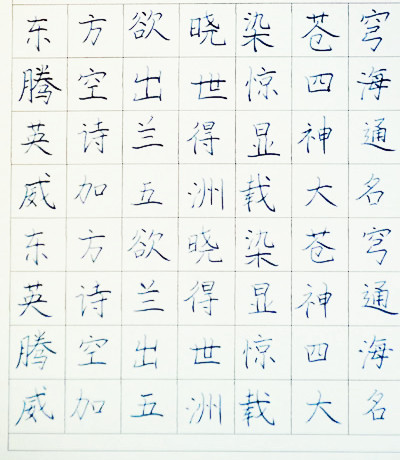 东方欲晓染苍穹
腾空出世惊四海
英诗兰得显神通
威加五洲载大名
东方欲晓染苍穹
英诗兰得显神通
腾空出世惊四海
威加五洲载大名